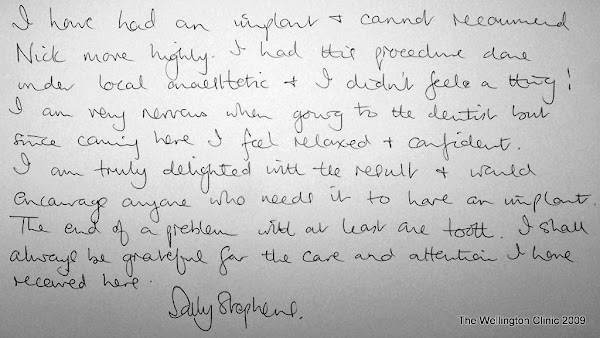 I have had an implant & cannot recommend
Nick more highly. I had this procedure done
under local anaesthetic & I didn't feele a thing!
I am very nervous when going to the dentist but
since coming here I feel relaxed & confident.
I am truly delighted with the result & would
encourage anyone who needs it to have an implant.
The end of a problem with at least one tooth. I shall
always be grateful for the care and attention I have
received here.
Sally Stephens.
The Wellington Clinic 2009